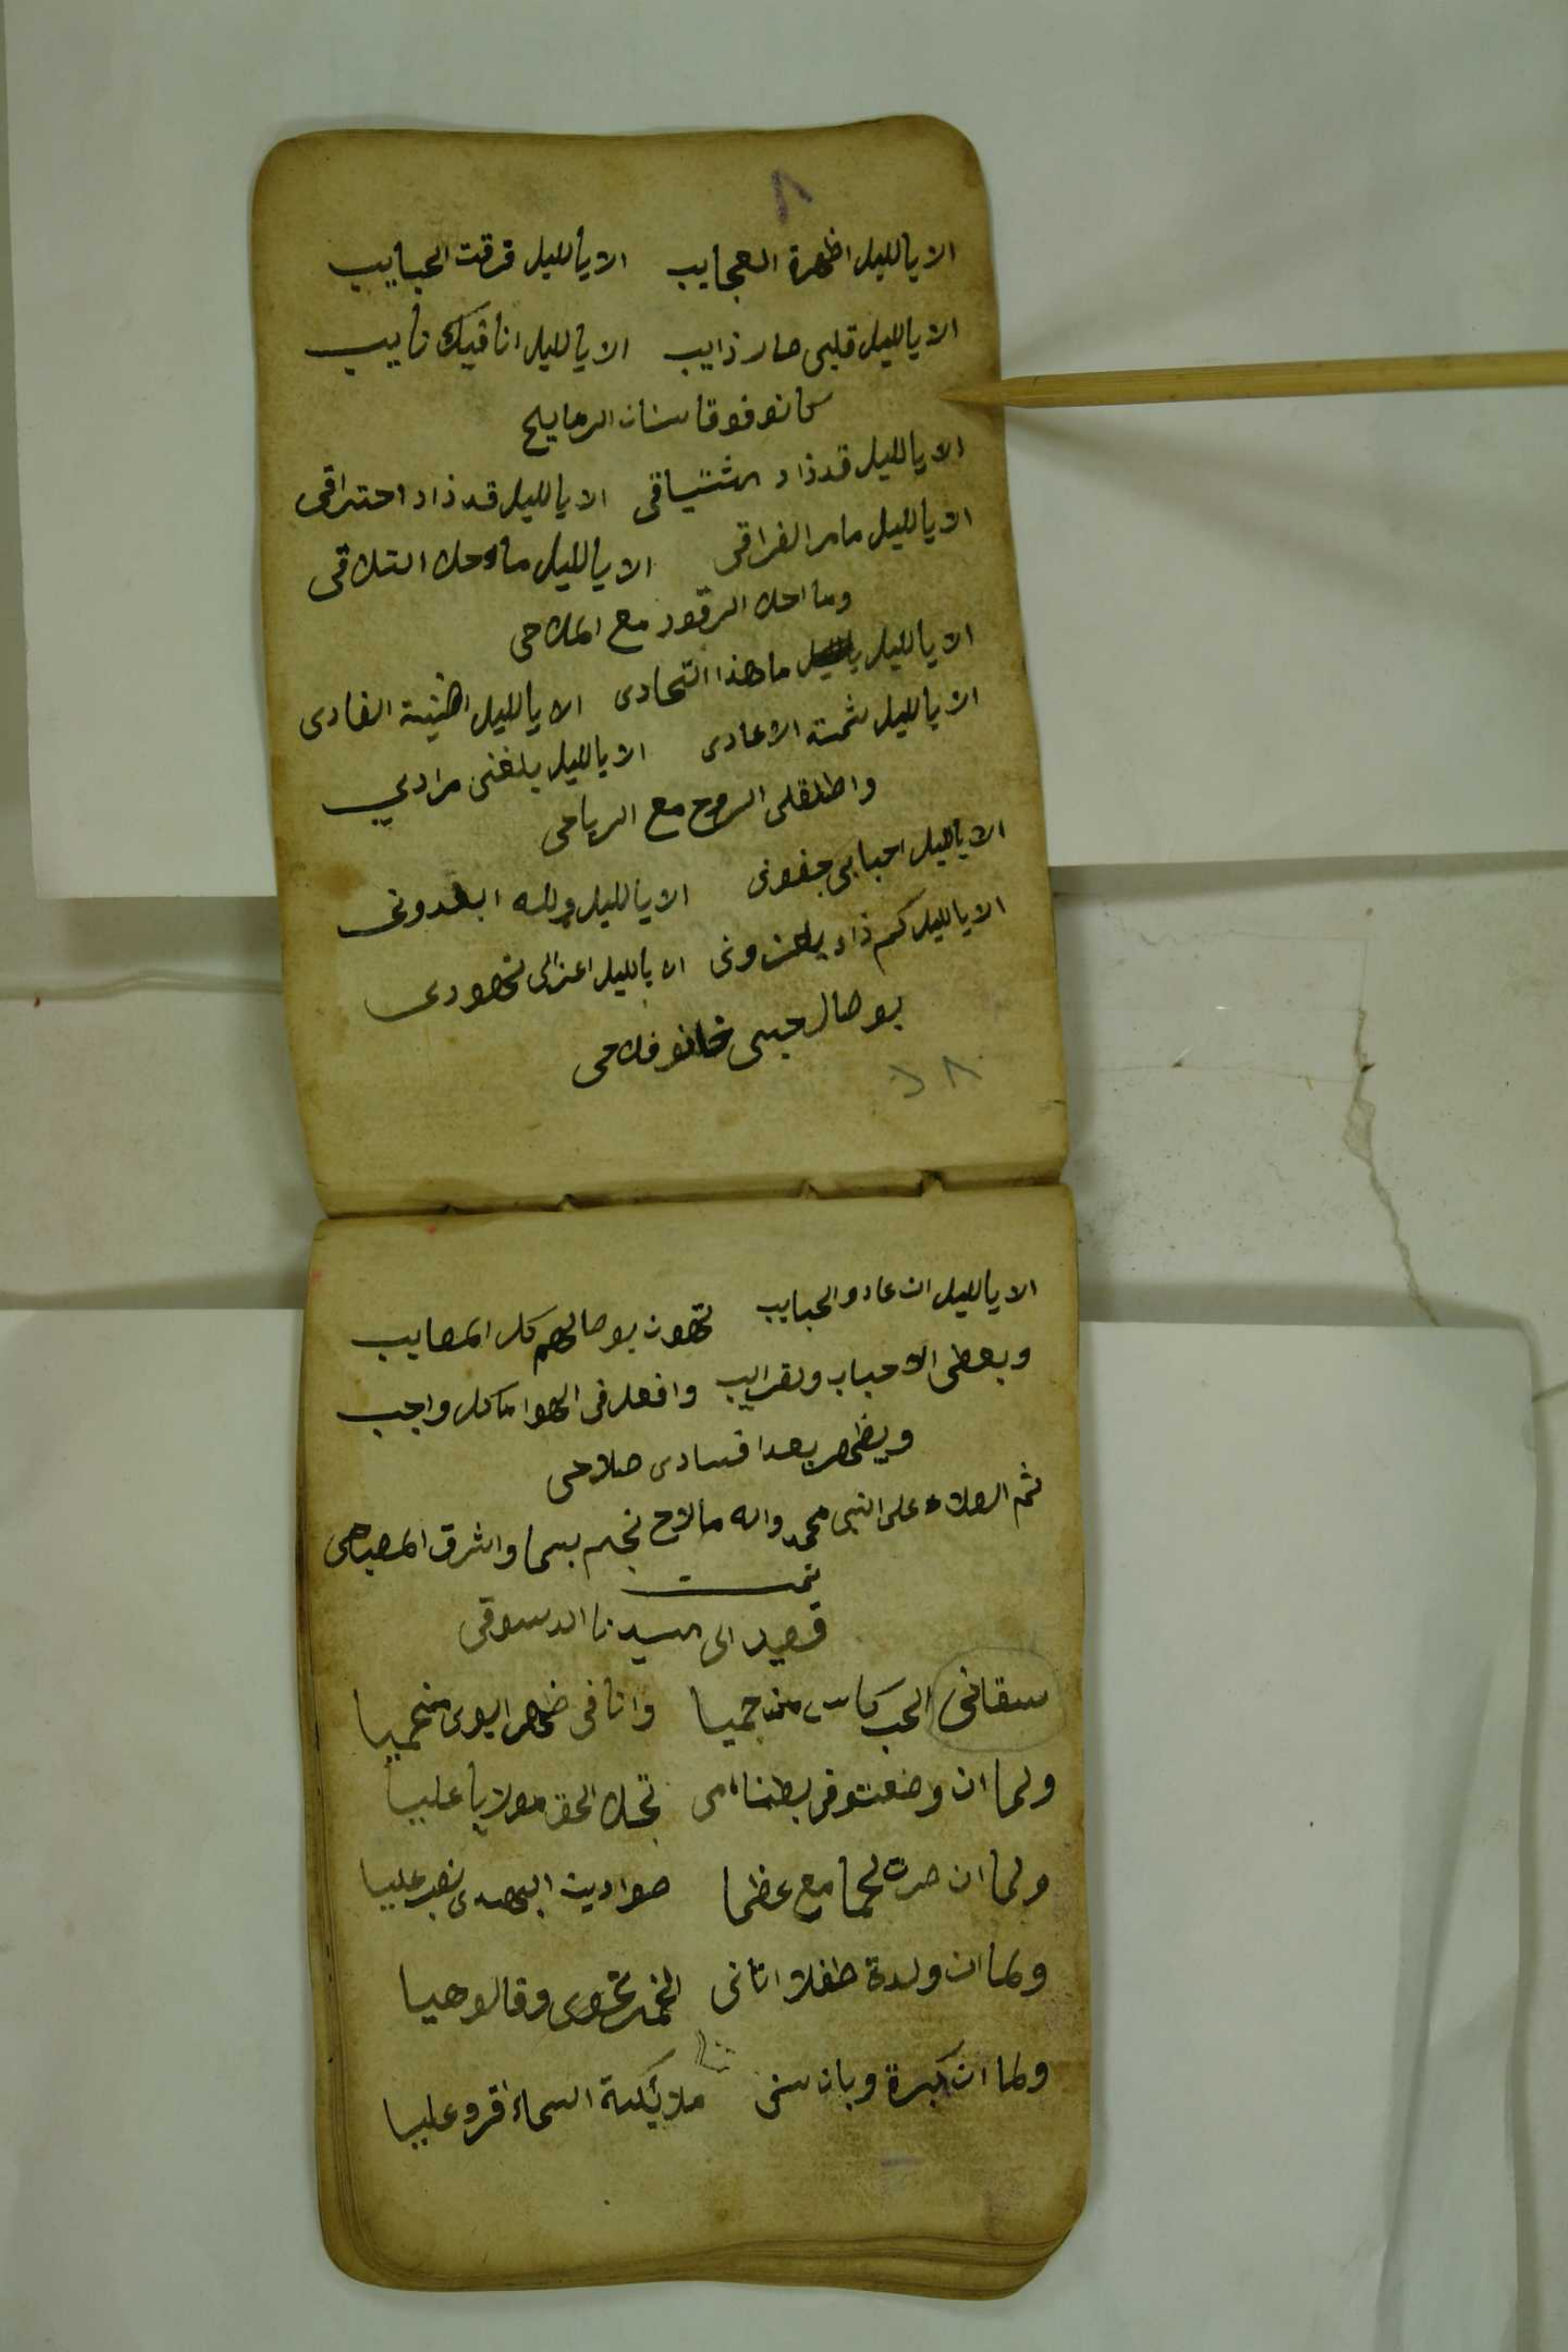 ٨
الا يالليل اظهرة العجايب الا يالليل فرقت الحبايب
الا يالليل قلبي صار ذايب الا يالليل انا فيك نايب
كانو فوقا سنان الرمايح
الا يالليل قد ذاد اشتياقى الا يالليل قد ذاد احتراقى
الا يالليل ما مر الفراقى الا يالليل ما احلا التلاقى
وما احلا الرقود مع الملاحى
الا يالليل ما هذا التحادى الا يالليل اظنيت الفادى
الا يالليل شمتة الاعادى الا يالليل بلغنى مرادي
واطلقلى الروح مع الرياحى
الا يالليل احبابى جفونى الا يالليل ولله ابعدونى
الا يالليل كم ذاد الا يالليل
بوصال حبى فلاحى
٨
الا يالليل ان عادو الحبايب تهون بوصالهم كل المصايب
وبعطى الاحباب ولقرايب وافعل فى الهوا ما كل واجب
ويظهر بعدا فسادى صلاحى
ثم الصلاة على النبى محمد واله ما لاح نجم بسما واشرق المصباحى
تمت
قصيد الى السيدنا الدسوقى
سقانى الحب كاس من حميا وانا فى ضهر ابوى
ولما ان وضعت فى بطنا امى تجلا الحق مولايا عليا
ولما ان صرت لحما مع عظما عليا
ولما ان ولدة طفلا اتانى نحوى وقالو هيا
ولما ان كبرة وبان سنى ملايكة السماء اقرو عليا